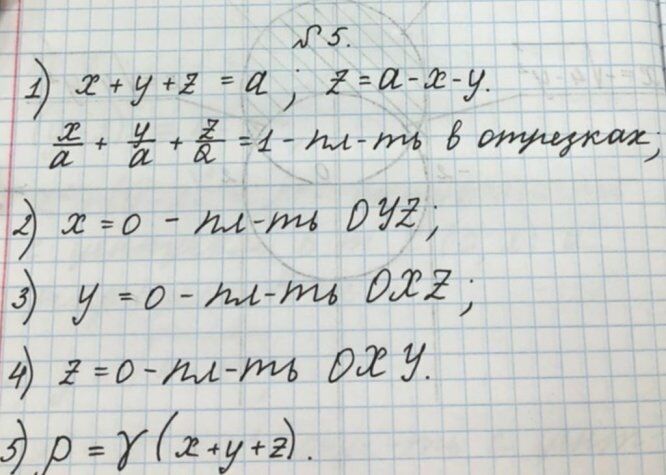 №5.
1) x + y + z = a ; z = a - x - y.
x/a + y/a + z/a = 1 - пл-ть в отрезках;
2) x = 0 - пл-ть OYZ;
3) y = 0 - пл-ть OXZ;
4) z = 0 - пл-ть OXY.
5) ρ = γ (x + y + z).